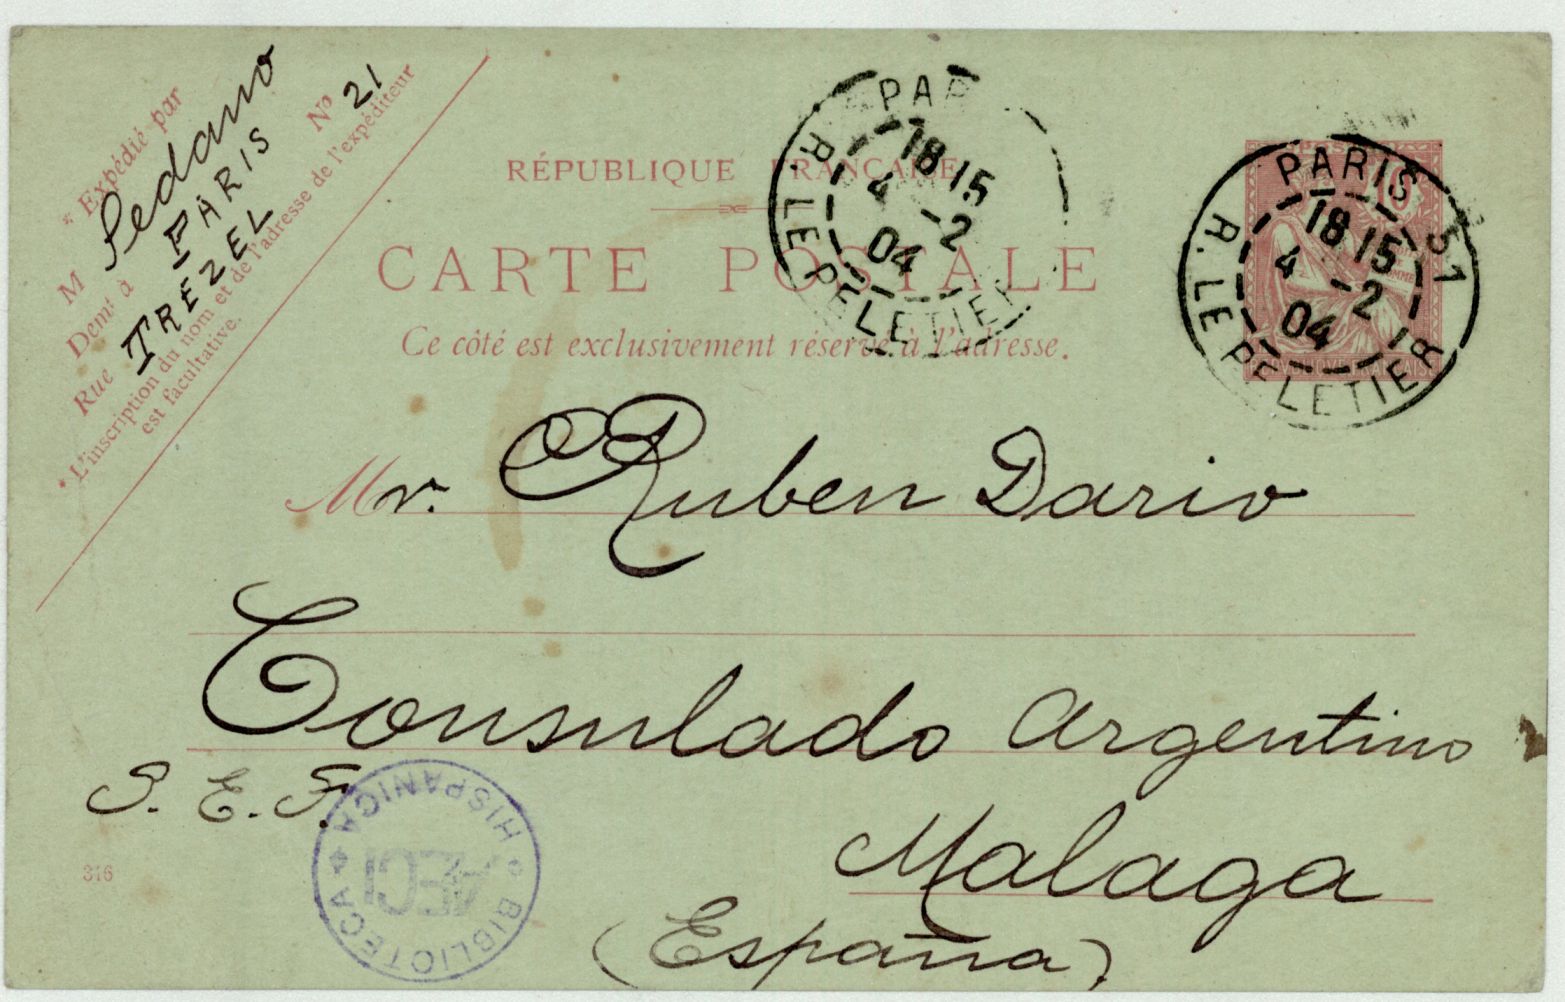 * Expédié par
M Sedano
Demt à PARIS
Rue TRÉZEL Nº 21
* L'inscription du nom et de l'adresse de l'expéditeur
est facultative.
RÉPUBLIQUE FRANÇAISE
CARTE POSTALE
Ce côté est exclusivement réservé à l'adresse.
PAR
18 15
4 -2
04
R. LE PELETIER
PARIS 51
18 15
4 -2
04
R. LE PELETIER
10
Mr. Ruben Dario
Consulado Argentino
S. E. F.
Malaga
(España)
316
BIBLIOTECA HISPANICA
AECI